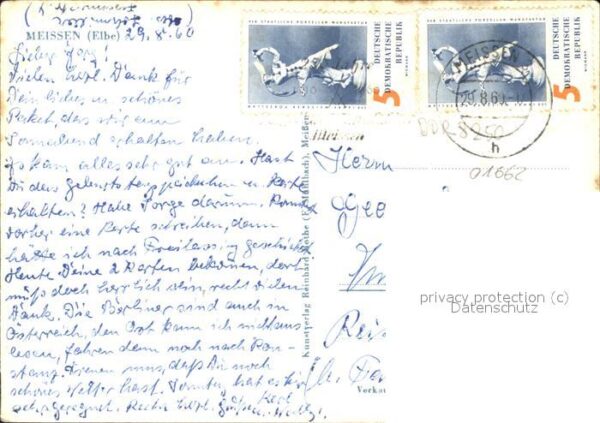 MEISSEN (Elbe) 29.8.60
Vielen herzl. Dank für
Dein liebes u. schönes
Paket, das wir am
Sonnabend erhalten haben.
Es kam alles sehr gut an. Hast
Du das Geburtstagspäckchen u. Karte
erhalten? Habe Sorge darum. Konnte
vorher eine Karte schreiben, dann
hätte ich nach Freilassing geschickt.
Heute Deine 2 Karten bekommen, dort
muß doch herrlich sein, recht vielen
Dank. Die Berliner sind auch in
Österreich, den Ort kann ich nicht
lesen, fahren dann noch nach Kon-
stanz. Freuen uns, daß Du noch
schönes Wetter hast. Sonntag hat es hier
sehr geregnet. Recht herzl. Grüßen
DIE STAATLICHE PORZELLAN-MANUFAKTUR
MEISSEN
DEUTSCHE
DEMOKRATISCHE
REPUBLIK
5
DIE STAATLICHE PORZELLAN-MANUFAKTUR
MEISSEN
DEUTSCHE
DEMOKRATISCHE
REPUBLIK
5
MEISSEN
29.8.60
h
DDR-8250
01662
Kunstverlag Reinhard Rothe
Meißen
Herrn
privacy protection (c)
Datenschutz